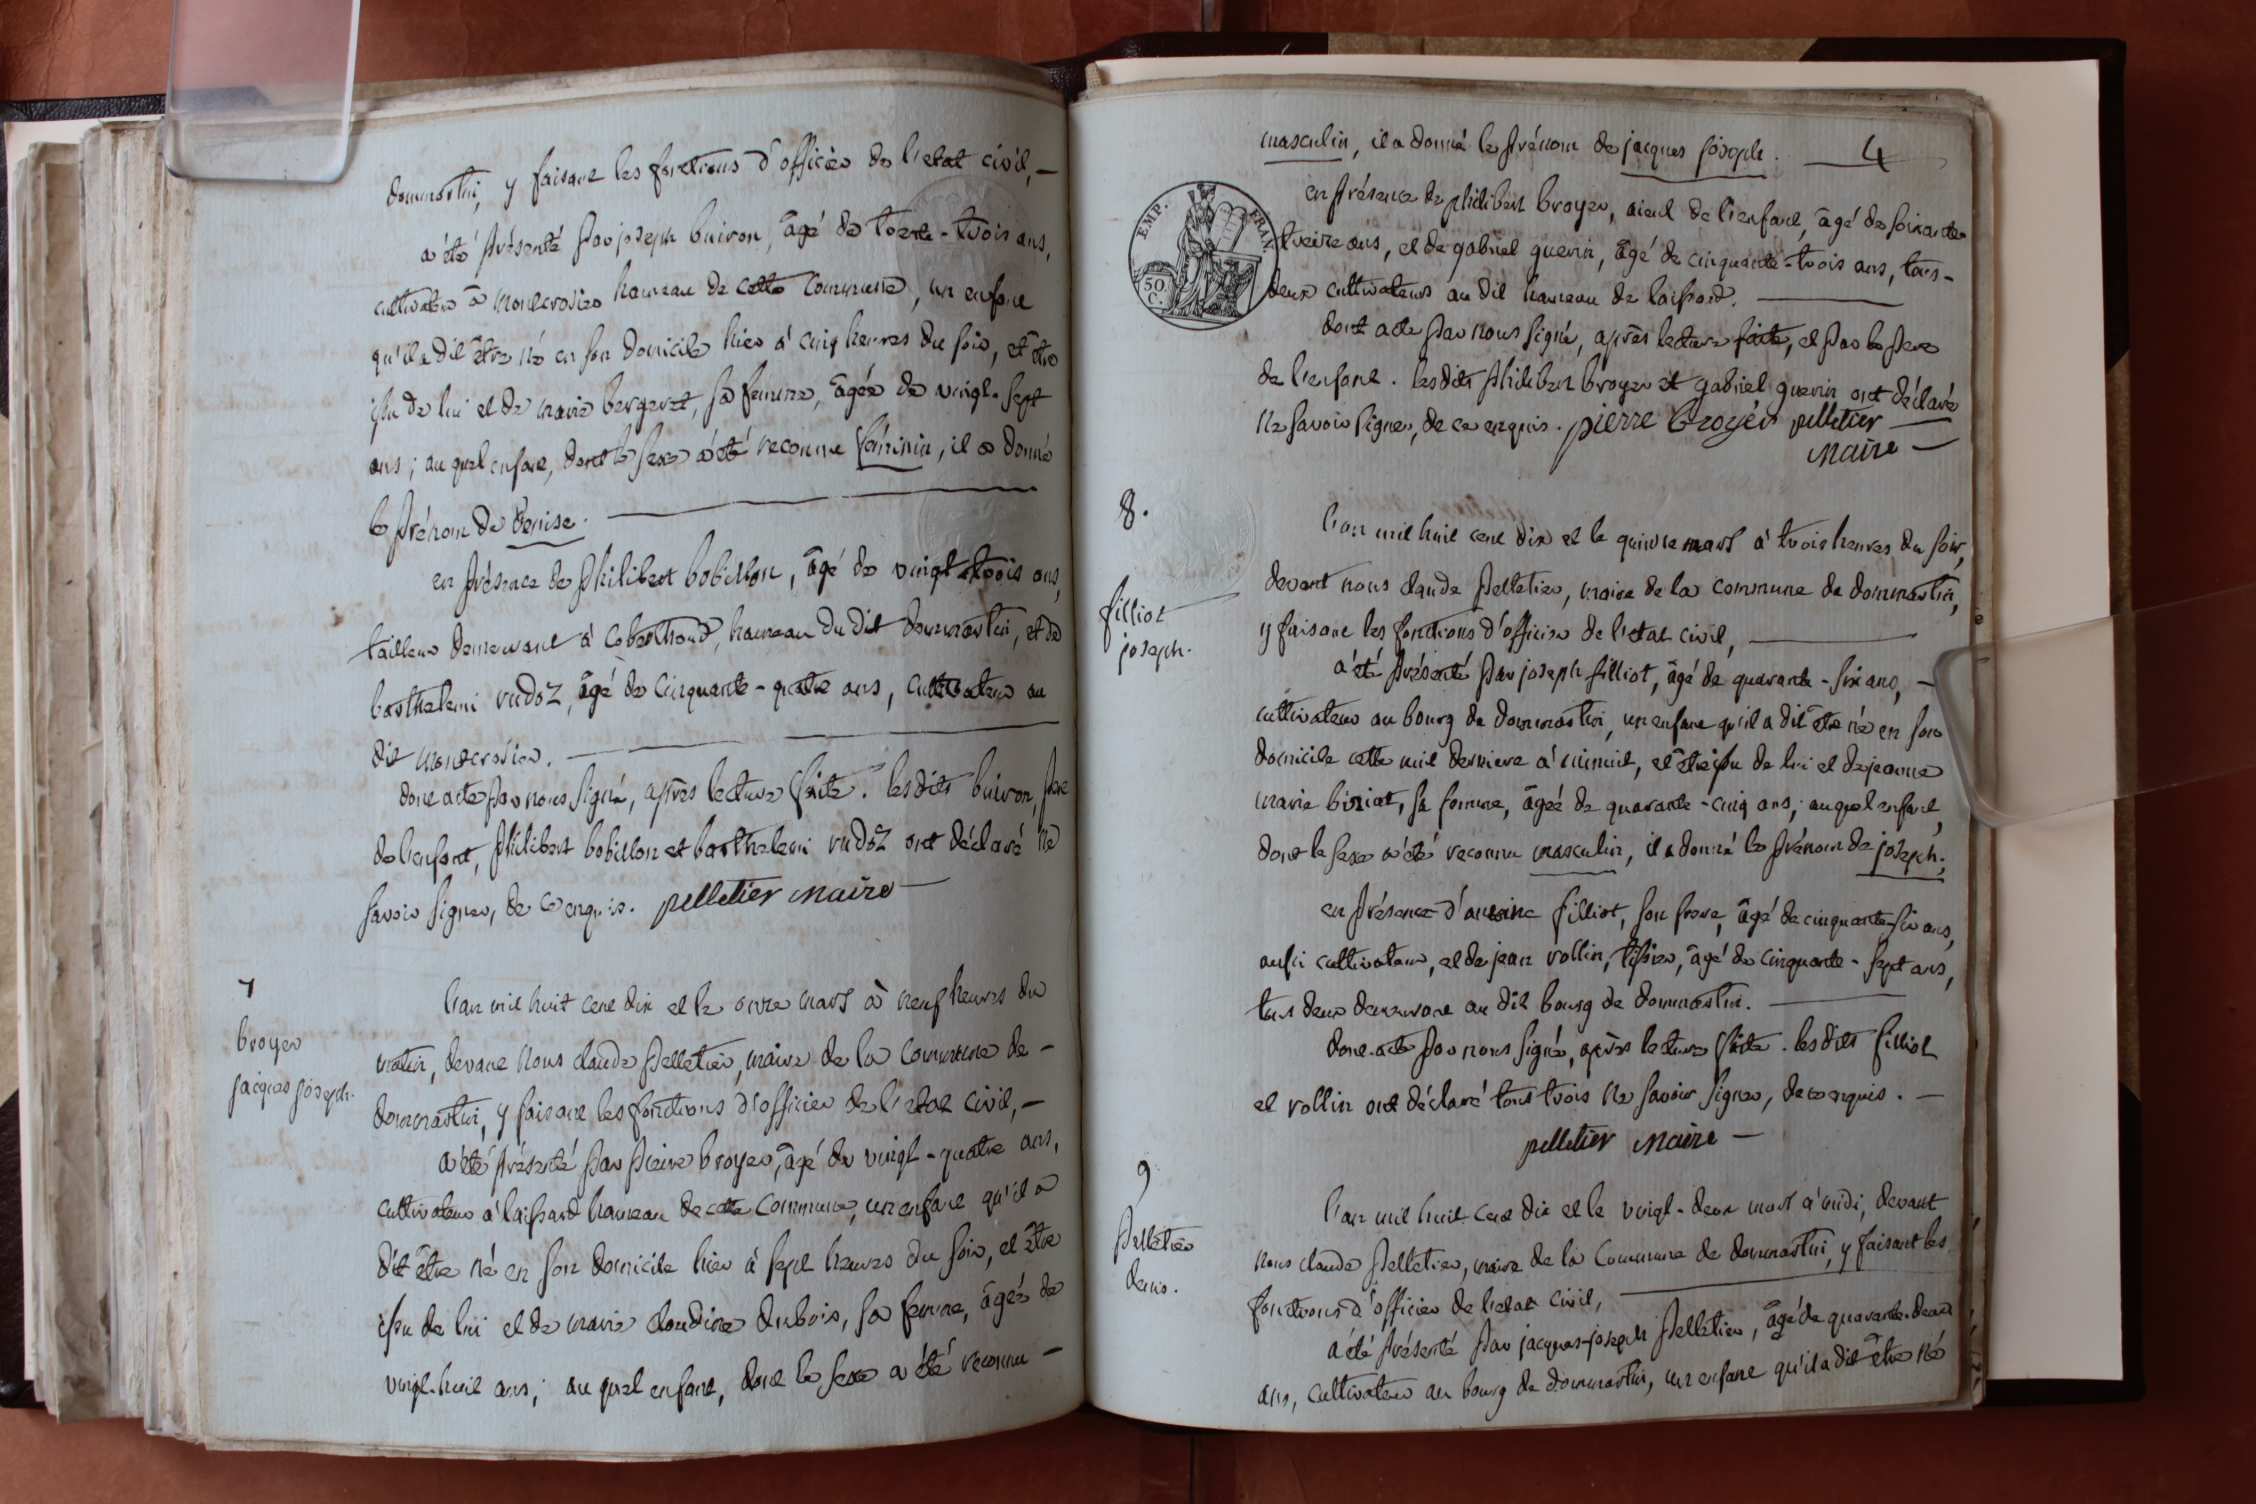 dommartin, y faisant les fonctions d'officier de l'etat civil, —
a été présenté par joseph buiron, âgé de trente-trois ans,
cultivateur à montcrosier hameau de cette commune, un enfant
qu'il a dit être né en son domicile hier à cinq heures du soir, et être
issu de lui et de marie bergeret, sa femme, âgée de vingt-sept
ans; au quel enfant, dont le sexe a été reconnu féminin, il a donné
le prénom de Denise.
en présence de philibert bobillon, âgé de vingt-trois ans,
tailleur demeurant à Coberthoud, hameau du dit dommartin, et de
barthelemi rudoz, âgé de cinquante-quatre ans, cultivateur au
dit montcrosier.
dont acte par nous signé, après lecture faite. lesdits buiron, pere
de l'enfant, philibert bobillon et barthelemi rudoz ont déclaré ne
savoir signer, de ce enquis. pelletier maire
7
broyer
jacques joseph.
l'an mil huit cent dix et le onze mars à neuf heures du
matin, devant nous claude pelletier, maire de la commune de -
dommartin, y faisant les fonctions d'officier de l'etat civil, —
a été présenté par pierre broyer, âgé de vingt-quatre ans,
cultivateur à laissard hameau de cette commune, un enfant qu'il a
dit être né en son domicile hier à sept heures du soir, et être
issu de lui et de marie claudine dubois, sa femme, âgée de
vingt-huit ans; au quel enfant, dont le sexe a été reconnu —
masculin, il a donné le prénom de jacques joseph. 4
EMP. FRAN.
50 C.
en présence de philibert broyer, aieul de l'enfant, âgé de soixante-
treize ans, et de gabriel guerin, âgé de cinquante-trois ans, tous-
deux cultivateurs au dit hameau de laissard.
dont acte par nous signé, après lecture faite, et par le pere
de l'enfant. lesdits philibert broyer et gabriel guerin ont déclaré
ne savoir signer, de ce enquis. pierre broyer pelletier
maire —
8.
filliot
joseph.
l'an mil huit cent dix et le quinze mars à trois heures du soir,
devant nous claude pelletier, maire de la commune de dommartin,
y faisant les fonctions d'officier de l'etat civil,
a été présenté par joseph filliot, âgé de quarante-six ans, —
cultivateur au bourg de dommartin, un enfant qu'il a dit être né en son
domicile cette nuit derniere à minuit, et être issu de lui et de jeanne
marie, sa femme, âgée de quarante-cinq ans; auquel enfant,
dont le sexe a été reconnu masculin, il a donné le prénom de joseph.
en présence d'antoine filliot, son frere, âgé de cinquante-six ans,
aussi cultivateur, et de jean vollin, tissier, âgé de cinquante-sept ans,
tous deux demeurant au dit bourg de dommartin.
dont acte par nous signé, après lecture faite. lesdits filliot
et vollin ont déclaré tous trois ne savoir signer, de ce enquis. —
pelletier maire —
9
pelletier
denis.
l'an mil huit cent dix et le vingt-deux mars à midi, devant
nous claude pelletier, maire de la commune de dommartin, y faisant les
fonctions d'officier de l'etat civil,
a été présenté par jacques-joseph pelletier, âgé de quarante-deux
ans, cultivateur au bourg de dommartin, un enfant qu'il a dit être né